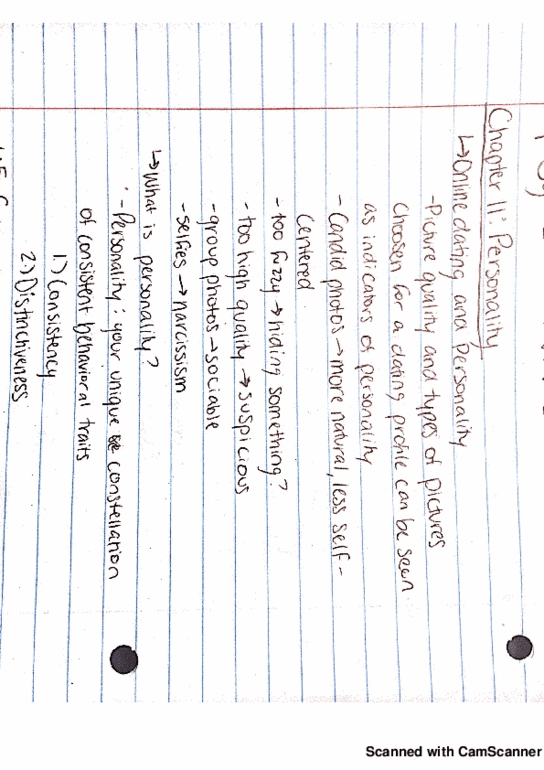 Chapter 11: Personality
↳Online dating and Personality
-Picture quality and types of pictures
choosen for a dating profile can be seen
as indicators of personality
- Candid photos→more natural, less self-
centered
- too fuzzy→hiding something?
- too high quality→suspicious
-group photos→sociable
-selfies→narcissism
↳What is personality?
- Personality: your unique constellation
of consistent behavioral traits
1) Consistency
2) Distinctiveness
Scanned with CamScanner